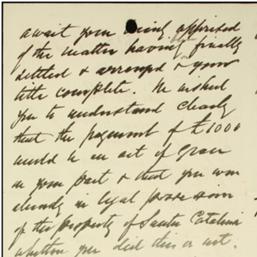 await your being apprised
of the matter having finally
settled & arranged & your
title complete. He wished
you to understand clearly
that the payment of £1000
would be an act of grace
on your part & that you were
already in legal possession
of the property of Santa Catalina
whether you did this or not.